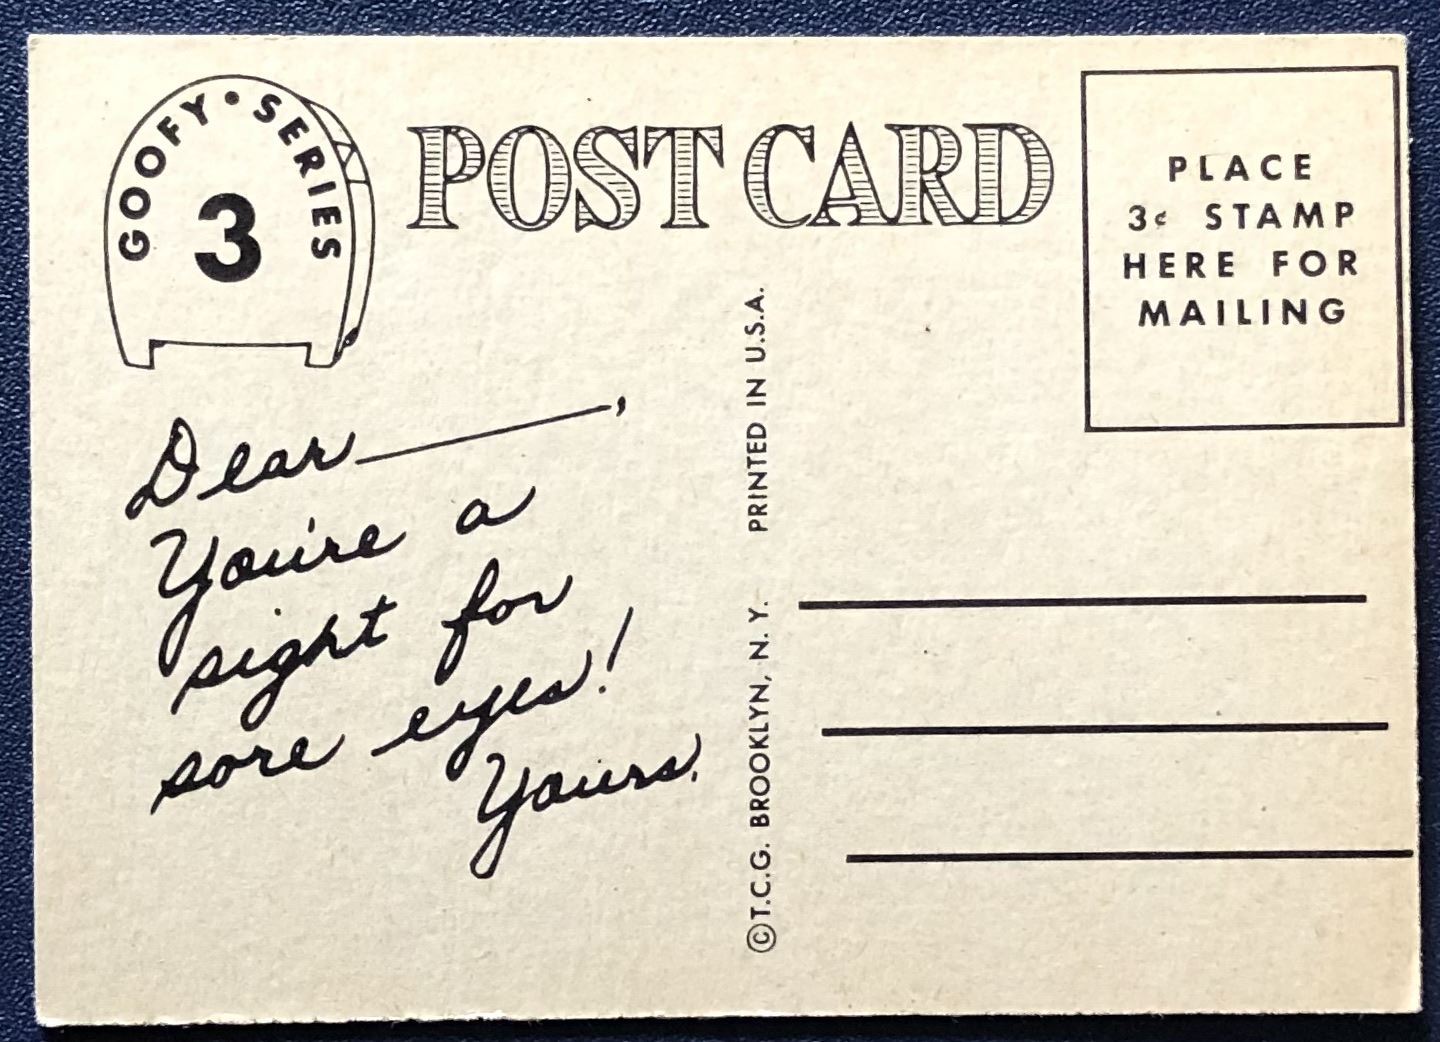 GOOFY • SERIES
3
POST CARD
PLACE
3¢ STAMP
HERE FOR
MAILING
Dear ________,
You're a
sight for
sore eyes!
Yours,
©T.C.G. BROOKLYN, N. Y. PRINTED IN U.S.A.